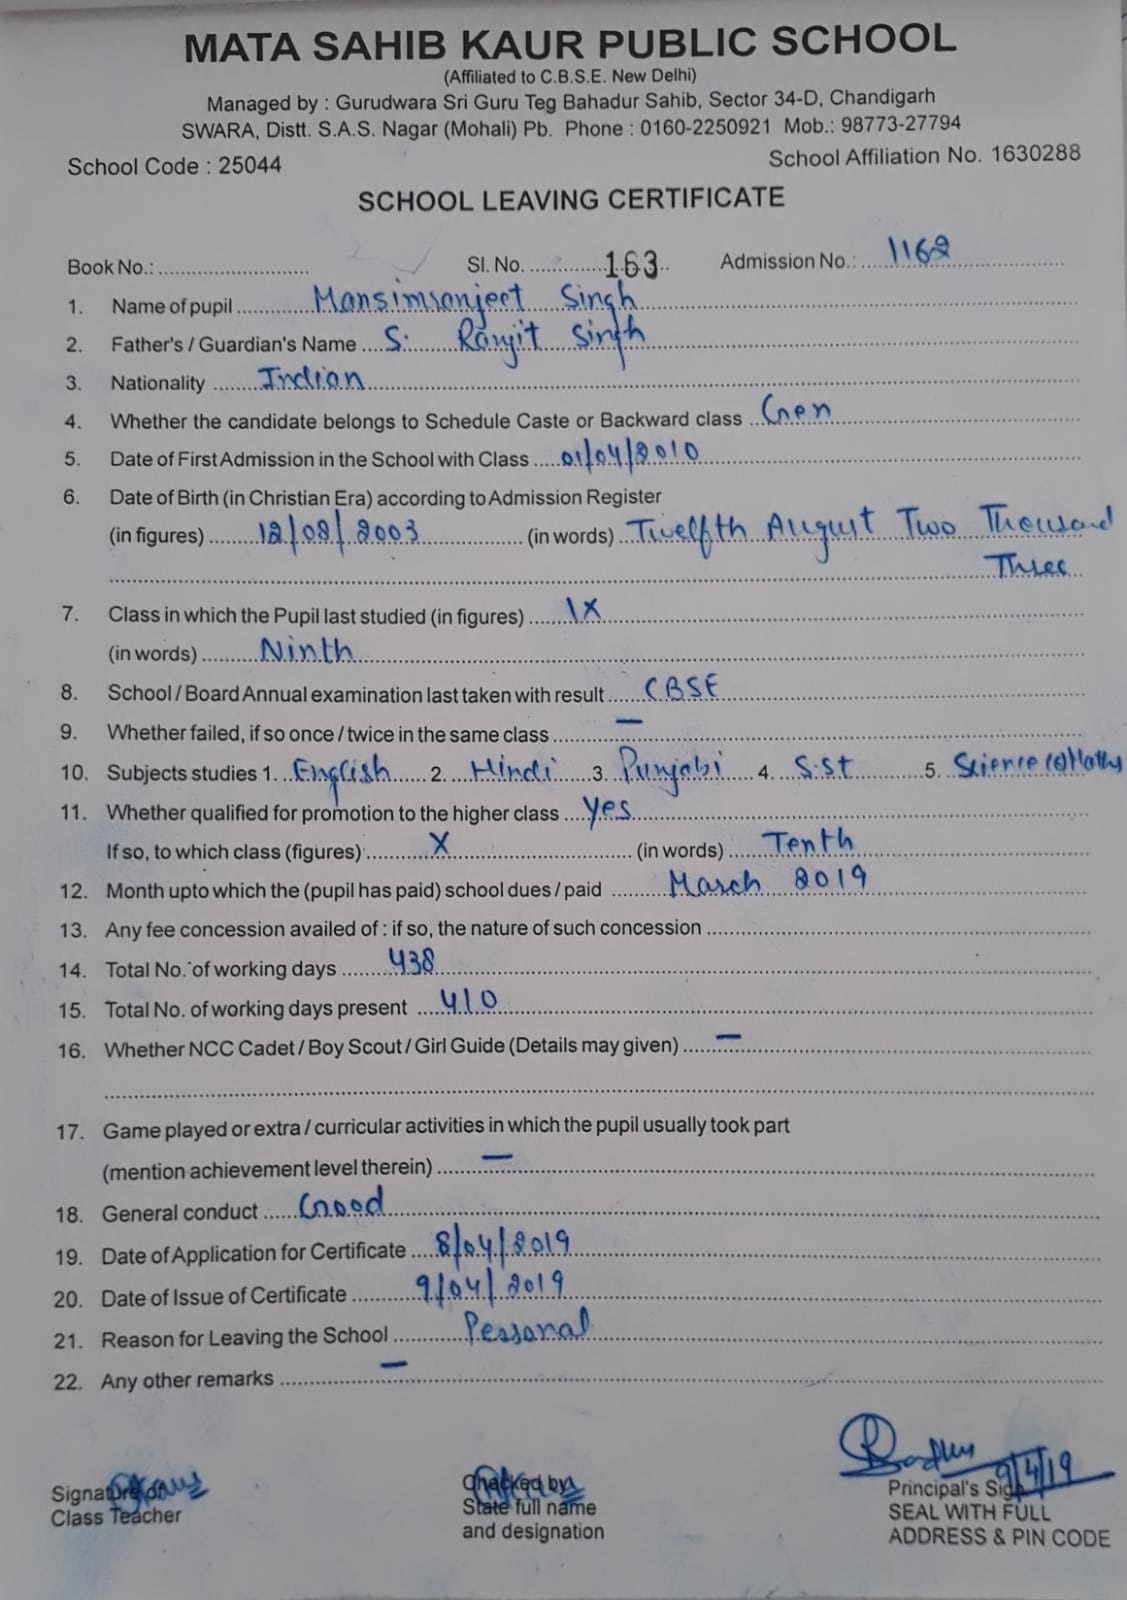 MATA SAHIB KAUR PUBLIC SCHOOL
(Affiliated to C.B.S.E. New Delhi)
Managed by : Gurudwara Sri Guru Teg Bahadur Sahib, Sector 34-D, Chandigarh
SWARA, Distt. S.A.S. Nagar (Mohali) Pb. Phone : 0160-2250921 Mob.: 98773-27794
School Code : 25044 School Affiliation No. 1630288
SCHOOL LEAVING CERTIFICATE
Book No.: Sl. No. 163 Admission No.: 1162
1. Name of pupil Mansimranjeet Singh
2. Father's / Guardian's Name S. Ranjit Singh
3. Nationality Indian
4. Whether the candidate belongs to Schedule Caste or Backward class Gen
5. Date of First Admission in the School with Class 01/04/2010
6. Date of Birth (in Christian Era) according to Admission Register
(in figures) 12/08/2003 (in words) Twelfth August Two Thousand
Three
7. Class in which the Pupil last studied (in figures) IX
(in words) Ninth
8. School / Board Annual examination last taken with result CBSE
9. Whether failed, if so once / twice in the same class —
10. Subjects studies 1. English 2. Hindi 3. Punjabi 4. S.St 5. Science (6) Maths
11. Whether qualified for promotion to the higher class yes
If so, to which class (figures) X (in words) Tenth
12. Month upto which the (pupil has paid) school dues / paid March 2019
13. Any fee concession availed of : if so, the nature of such concession
14. Total No. of working days 438
15. Total No. of working days present 410
16. Whether NCC Cadet / Boy Scout / Girl Guide (Details may given) —
17. Game played or extra / curricular activities in which the pupil usually took part
(mention achievement level therein) —
18. General conduct Good
19. Date of Application for Certificate 8/04/2019
20. Date of Issue of Certificate 9/04/2019
21. Reason for Leaving the School Personal
22. Any other remarks —
9/4/19
Signature of Checked by Principal's Sig
Class Teacher State full name SEAL WITH FULL
and designation ADDRESS & PIN CODE